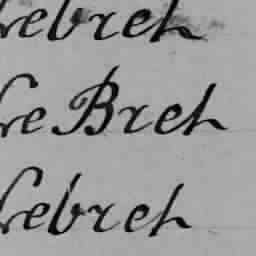 Lebret
Le Bret
Lebret